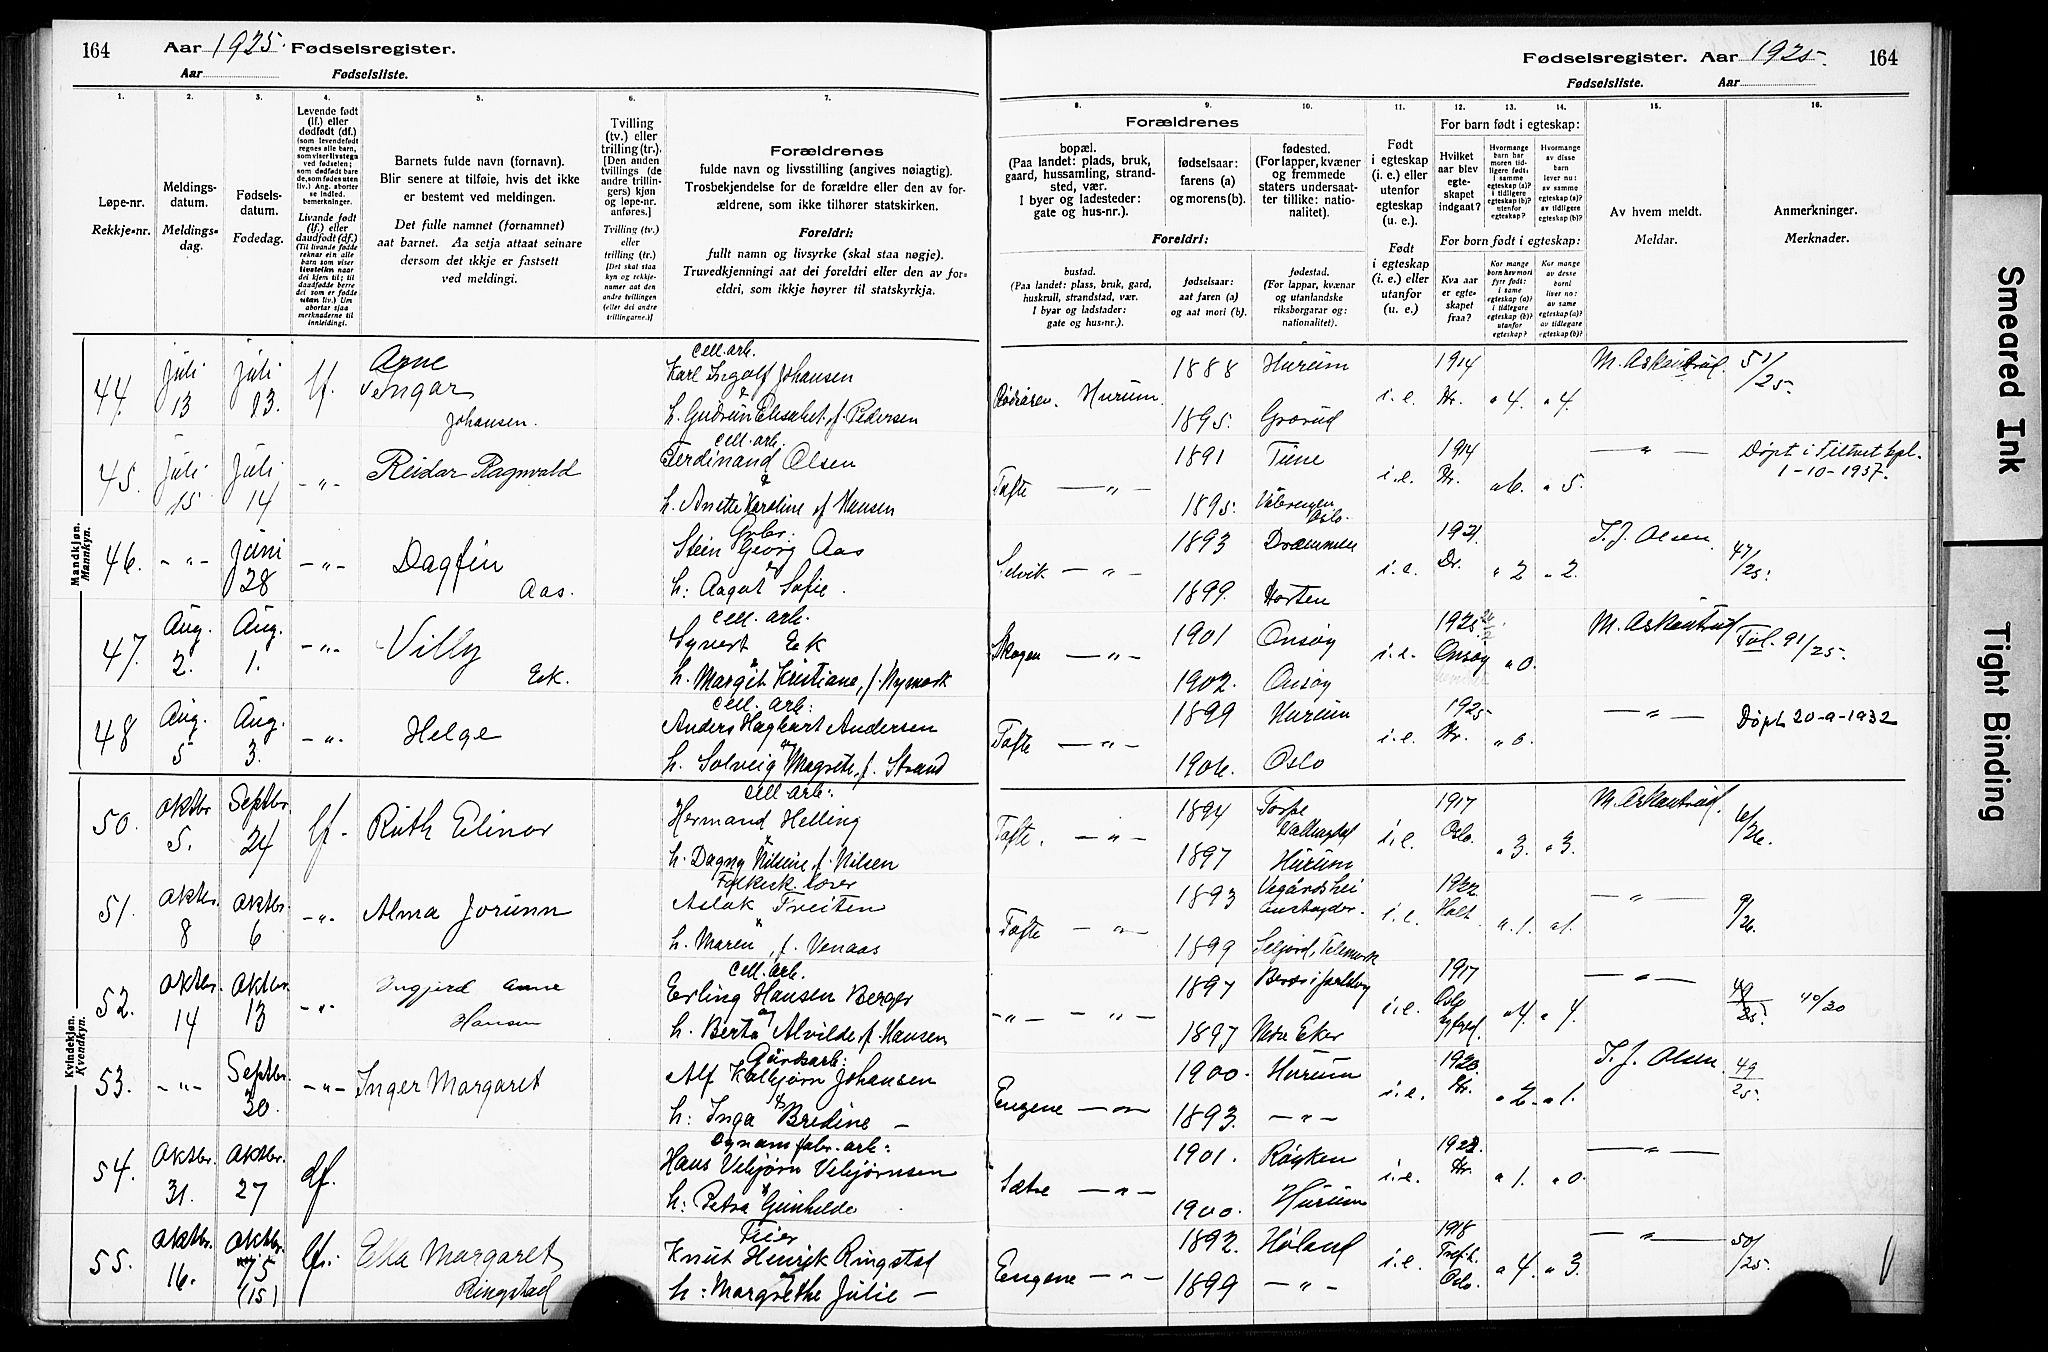 164 Aar 1925. Fødselsregister.
Aar Fødselsliste.
Fødselsregister. Aar 1925. 164
Fødselsliste. Aar
1. 2. 3. 4. 5. 6. 7.
Løpe-nr.
Rekkje-nr.
Meldings-
datum.
Meldings-
dag.
Fødsels-
datum.
Fødedag.
Levende født
(lf.) eller
dødfødt (df.)
Livande født
(lf.) eller
daudfødt (df.)
Barnets fulde navn (fornavn).
Blir senere at tilføie, hvis det ikke
er bestemt ved meldingen.
Det fulle namnet (fornamnet)
aat barnet. Aa setja attaat seinare
dersom det ikkje er fastsett
ved meldingi.
Tvilling
(tv.) eller
trilling (tr.).
[Den anden
tvillings (de
andre trillin-
gers) kjøn
og løpe-nr.
anføres.]
Tvilling (tv.)
eller
trilling (tr.)
[Det skal staa
kyn og rekkje-
numer aat den
andre tvillingen
(eller dei andre
trillingarne.)]
Forældrenes
fulde navn og livsstilling (angives nøiagtig).
Trosbekjendelse for de forældre eller den av for-
ældrene, som ikke tilhører statskirken.
Foreldri:
fullt namn og livsyrke (skal staa nøgje).
Truvedkjenningi aat dei foreldri eller den av for-
eldri, som ikkje høyrer til statskyrkja.
8. 9. 10. 11. 12. 13. 14. 15. 16.
Forældrenes
bopæl.
(Paa landet: plads, bruk,
gaard, hussamling, strand-
sted, vær.
I byer og ladesteder:
gate og hus-nr.).
fødselsaar:
farens (a)
og morens (b).
fødested.
(For lapper, kvæner
og fremmede
staters undersaat-
ter tillike: natio-
nalitet).
Foreldri:
bustad.
(Paa landet: plass, bruk, gard,
huskrull, strandstad, vær.
I byar og ladstader:
gate og hus-nr.).
fødselsaar:
aat faren (a)
og aat mori (b).
fødestad.
(For lappar, kvænar
og utanlandske
riksborgarar og:
nationalitet).
Født
i egteskap
(i. e.) eller
utenfor
egteskap
(u. e.).
Født
i egteskap
(i. e.) eller
utanfor
(u. e.).
For barn født i egteskap:
Hvilket
aar blev
egte-
skapet
indgaat?
For born født i egteskap:
Kva aar
er egte-
skapet
fraa?
Av hvem meldt.
Meldar.
Anmerkninger.
Merknader.
Mandkjøn.
Mannkyn.
44. Juli 13 Juli 13. lf. Arne Ingar Johansen. cell. arb. Karl Ingolf Johansen & h. Gudrun Elisabet f. Pedersen Rødråsen. Hurum. 1888 Hurum 1895. Grorud i.e. 1914 Hr. " 4. " 4. M. Askautrud. 51/25.
45. Juli 15 Juli 14 -"- Reidar Ragnvald cell. arb. Ferdinand Olsen & h. Anette Karoline f Hansen Tofte —"— 1891 Tune 1895. Vålerengen Oslo. i.e. 1914 Hr. " 6. " 5. —"— Døpt i Filtvet kpl. 1-10-1937.
46. -"- Juni 28 -"- Dagfin Aas. Grbr: Stein Georg Aas og h: Aagot Sofie. Selvik —"— 1893 Drammen 1899. Horten i.e. 1921. Dr. " 2 " 2. T. J. Olsen. 47/25.
47. Aug. 2. Aug. 1. -"- Villy Ek. cell. arb. Syvert Ek & h. Margit Kristiane, f. Nymark Skogen —"— 1901 Onsøy 1902. Onsøy i.e. 1925. Onsøy " 0. M. Askautrud Føl. 91/25.
48 Aug. 5 Aug. 3. -"- Helge cell. arb: Anders Hagbart Andersen og h. Solveig Magrete, f. Strand Tofte —"— 1899 Hurum 1906. Oslo i.e. 1925 Hr. " 0. —"— Døpt 20-9-1932
Kvindekjøn.
Kvendkyn.
50. oktbr 5. Septbr. 24 lf. Ruth Elinor cell. arb: Hermand Helling & h. Dagny Nilsine, f. Nilsen Tofte. —"— 1894 Torpe Hallingdal 1897 Hurum i.e. 1917 Oslo. " 3. " 3. M. Askautrud. 6/26.
51. oktbr. 8 oktbr. 6 -"- Alma Jorunn Folkesk. lærer Aslak Treiten & h. Maren, f. Venaas Tofte —"— 1893 Vegårdshei austagder. 1899 Seljord, Telemark i.e. 1922 Holt. " 1. " 1. —"— 9/26.
52. oktbr. 14 oktbr. 13 -"- Ingjerd Anne Hansen cell. arb. Erling Hansen Berger og h. Berta Alvilde f. Hansen -"- —"— 1897 1897 Nedre Eker i.e. 1917 Oslo " 4. " 4. —"— 49/25. 40/30
53. -"- Septbr. 30. -"- Inger Margaret Gårdsarb: Alf Kolbjørn Johansen & h: Inga Bredine — Engene —"— 1900. Hurum 1893. -"- i.e. 1920. Hr. " 2. " 1. T. J. Olsen. 49/25.
54. Oktbr. 31. Oktbr. 27 df. Dynamitfabr. arb: Hans Vebjørn Vebjørnsen & h: Petra Gunhilde Sætre —"— 1901. Røyken 1900. Hurum i.e. 1923. Hr. " 1. " 0. —"—
55. oktbr. 16. oktbr. 15 (15) lf. Ella Margaret Ringstad Feier Knut Henrik Ringstad & h: Margrethe Julie — Engene —"— 1892. Høland 1899 -"- i.e. 1918 Oslo. " 4. " 3. —"— 50/25.
Smeared Ink
Tight Binding